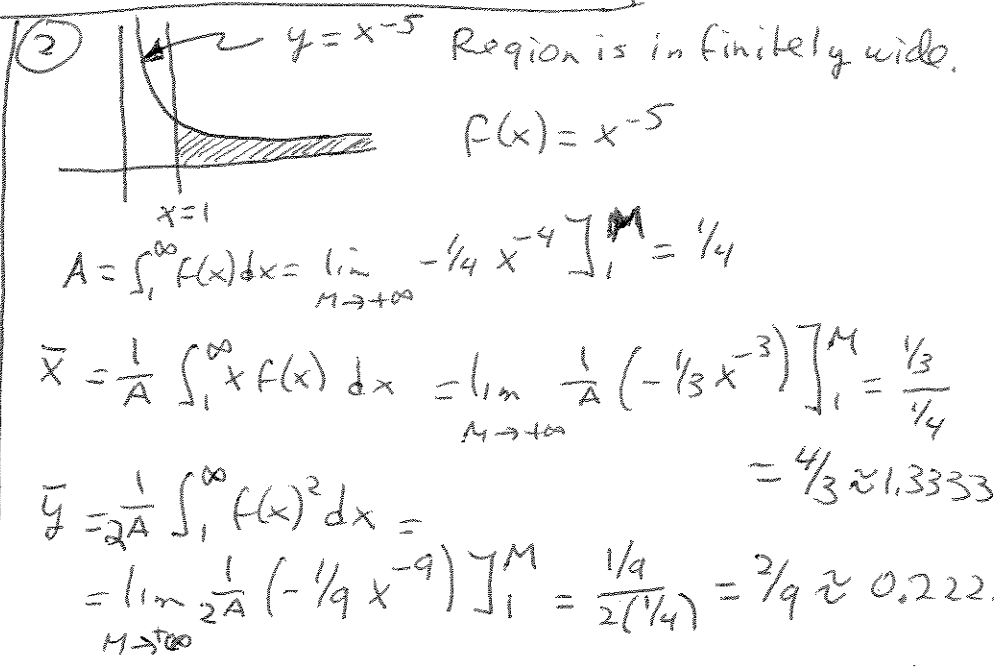 ② y = x⁻⁵ Region is infinitely wide.
f(x) = x⁻⁵
x=1
A = ∫₁^∞ f(x)dx = lim M→+∞ -1/4 x⁻⁴ ]₁^M = 1/4
x̄ = 1/A ∫₁^∞ x f(x) dx = lim M→+∞ 1/A (-1/3 x⁻³) ]₁^M = (1/3)/(1/4)
= 4/3 ≈ 1.3333
ȳ = 1/2A ∫₁^∞ f(x)² dx =
= lim M→+∞ 1/2A (-1/9 x⁻⁹) ]₁^M = (1/9)/(2(1/4)) = 2/9 ≈ 0.222.